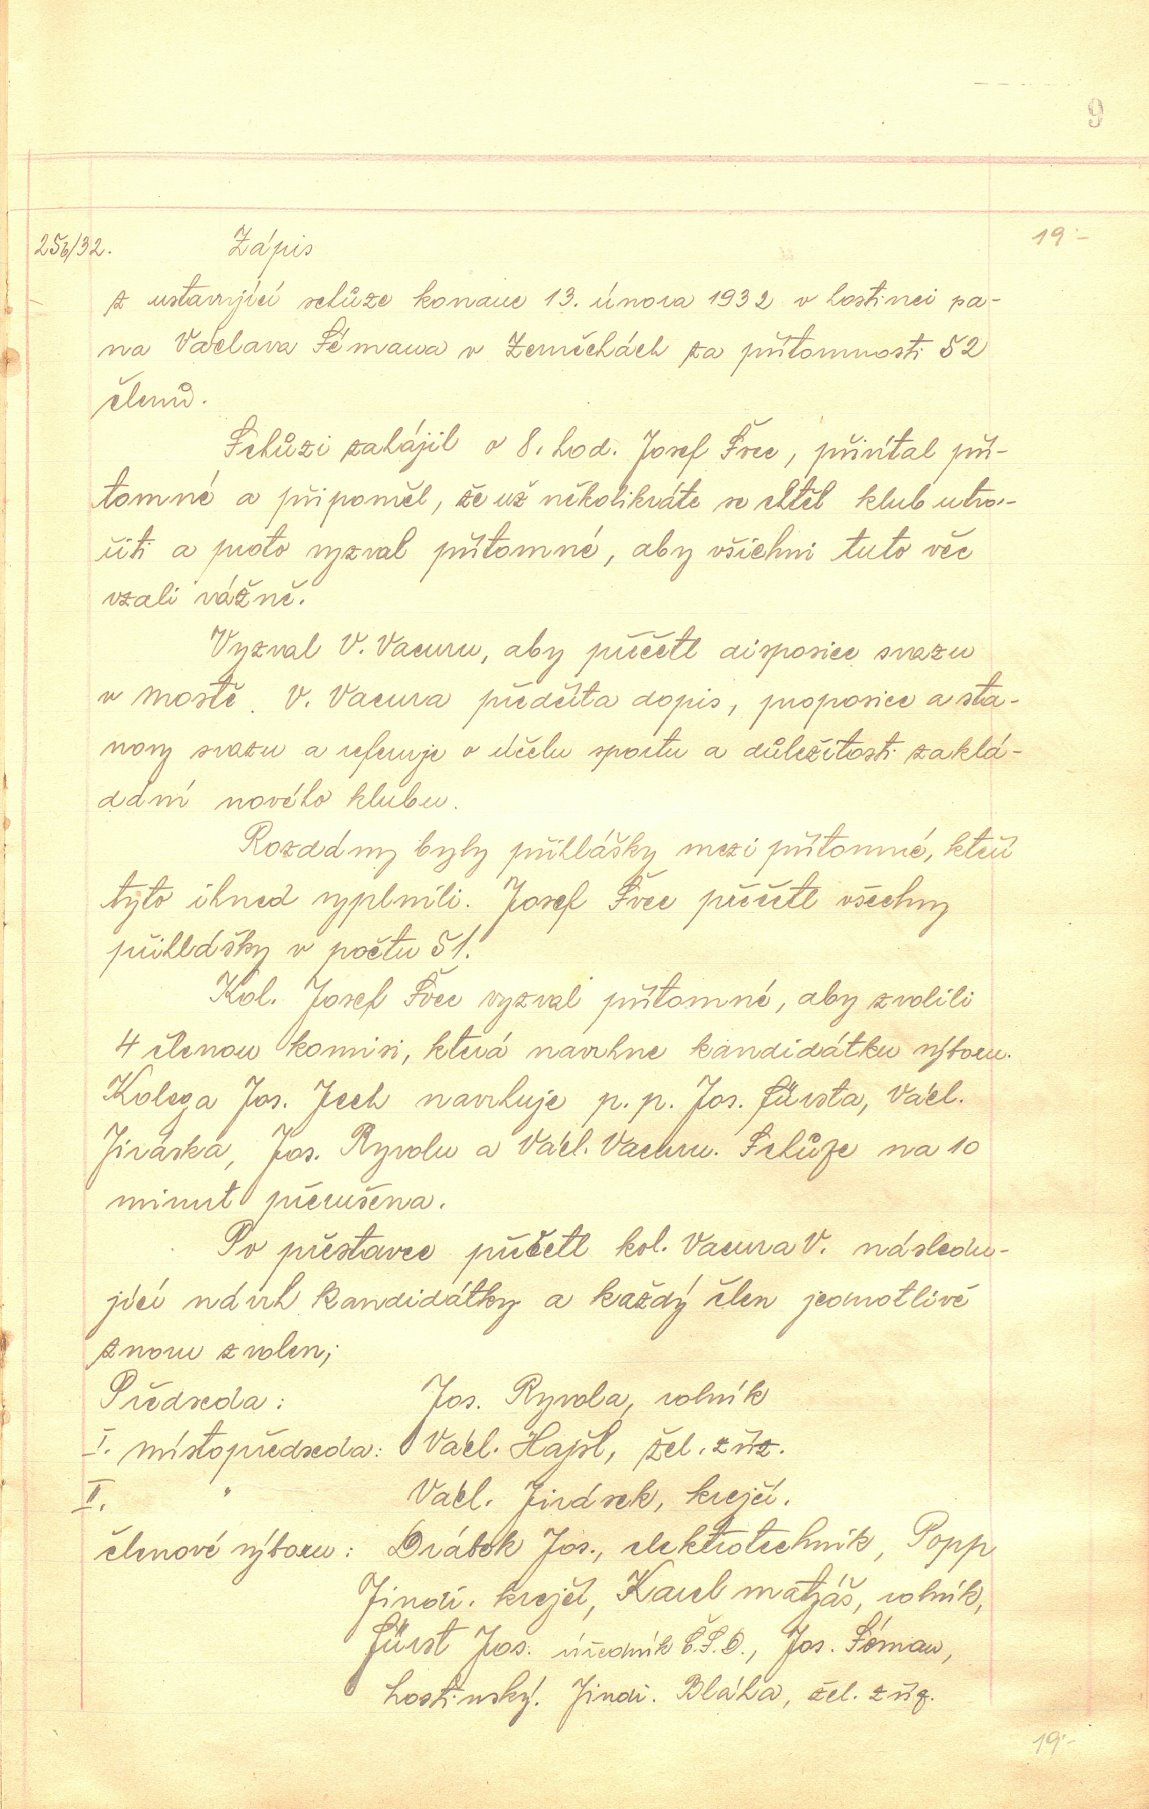 9
25b/32. Zápis 19·-
z ustavující schůze konané 13. února 1932 v hostinci pa-
na Václava Sémana v Zeměchách za přítomnosti 52
členů.
Schůzi zahájil o 8. hod. Josef Švec, přivítal pří-
tomné a připoměl, že už několikráte se chtěl klub utvo-
řiti a proto vyzval přítomné, aby všichni tuto věc
vzali vážně.
Vyzval V. Vacuru, aby přečetl disposice svazu
v Mostě. V. Vacura předčíta dopis, proposice a sta-
novy svazu a referuje o účelu sportu a důležitosti zaklá-
dání nového klubu.
Rozdány byly přihlášky mezi přítomné, kteří
tyto ihned vyplnili. Josef Švec přečetl všechny
přihlášky v počtu 51.
Kol. Josef Švec vyzval přítomné, aby zvolili
4 členou komisi, která navrhne kandidátku výboru.
Kolega Jos. Jech navrhuje p. p. Jos. Fürsta, Václ.
Jiráska, Jos. Ryvolu a Václ. Vacuru. Schůze na 10
minut přerušena.
Po přestavce přečetl kol. Vacura V. následu-
jící návrh kandidátky a každý člen jednotlivě
znovu zvolen;
Předseda: Jos. Ryvola, rolník
I. místopředseda: Václ. Hajšl, žel. zříz.
II. " Václ. Jirásek, krejčí.
členové výboru: Drábek Jos., elektrotechnik, Popp
Jindř. krejčí, Karel Matyáš, rolník,
Fürst Jos. úředník Č.S.D., Jos. Séman,
hostinský. Jindř. Bláha, žel. zříz.
19·-